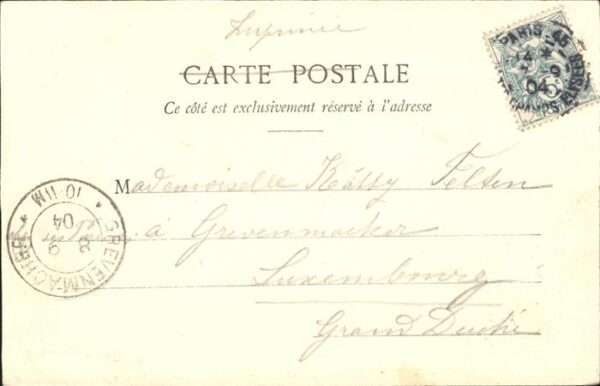 Imprimé
CARTE POSTALE
Ce côté est exclusivement réservé à l'adresse
Mademoiselle Kätty Felten
à Grevenmacher
Luxembourg
Grand Duché
PARIS 45
04
CHAMPS ELYSEES
GREVENMACHER
10-11V
3 9
04